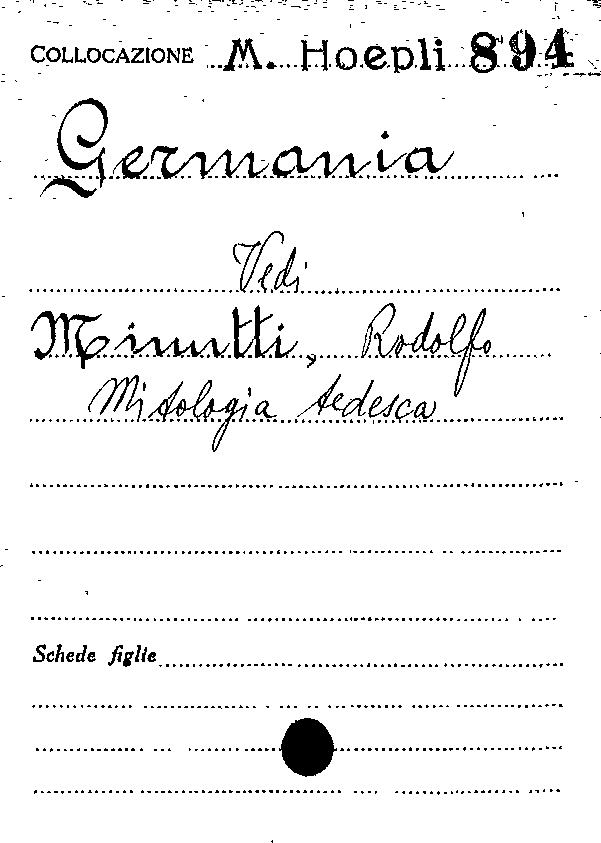 COLLOCAZIONE M. Hoepli 894
Germania
Vedi
Minutti, Rodolfo
Mitologia tedesca
Schede figlie